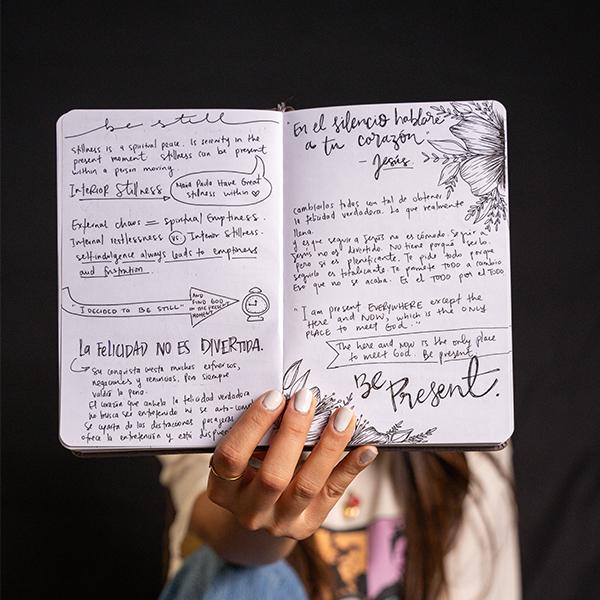 be still
stillness is a spiritual peace. Is serenity in the
present moment. stillness can be present
within a person moving.
Interior Stillness
Have Great
stillness within
External chaos = Spiritual Emptiness.
Internal restlessness vs. Interior stillness.
self-indulgence always leads to emptiness
and frustration.
"I DECIDED TO BE STILL"
AND
FIND GOD
IN THE PRESENT
MOMENT
La FELICIDAD NO ES DIVERTIDA.
Su conquista cuesta muchos esfuerzos,
negaciones y renuncias, pero siempre
valdrá la pena.
El corazón que anhela la felicidad verdadera
no busca ser entretenido ni se auto-
Se aparta de las distracciones pasajeras
ofrece la entretención y está
"En el silencio hablaré
a tu corazón"
- Jesús
cambiarlos todos con tal de obtener
la felicidad verdadera. Lo que realmente
llena.
y es que seguir a Jesús no es cómodo. Seguir a
Jesús no es divertido. No tiene porqué serlo.
Pero si es plenificante. Te pide todo porque
seguirlo es totalizante. Te promete TODO a cambio
Eso que no se acaba. Es el TODO por el TODO
"I am present EVERYWHERE except the
Here and NOW, which is the ONLY
PLACE to meet God..."
The here and Now is the only place
to meet God. Be present
Be
Present.